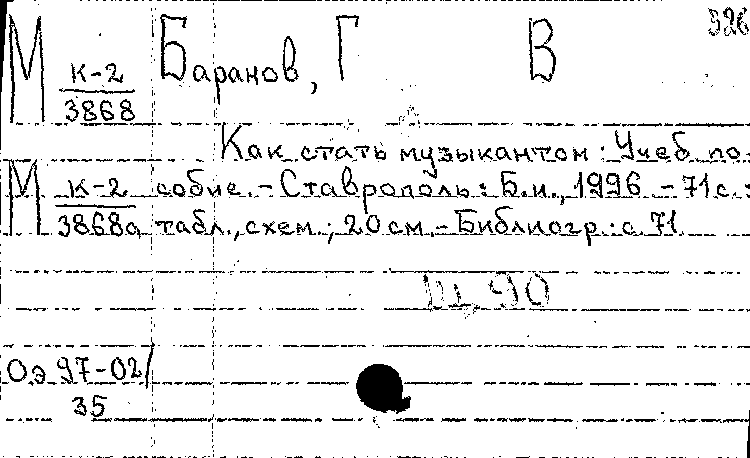 326
М К-2 Баранов, Г В
3868
Как стать музыкантом: Учеб. по-
М К-2 собие. - Ставрополь: Б.и., 1996. - 71 с.:
3868а табл., схем.; 20 см. - Библиогр.: с. 71
Щ 90
Оэ 97-02/
35